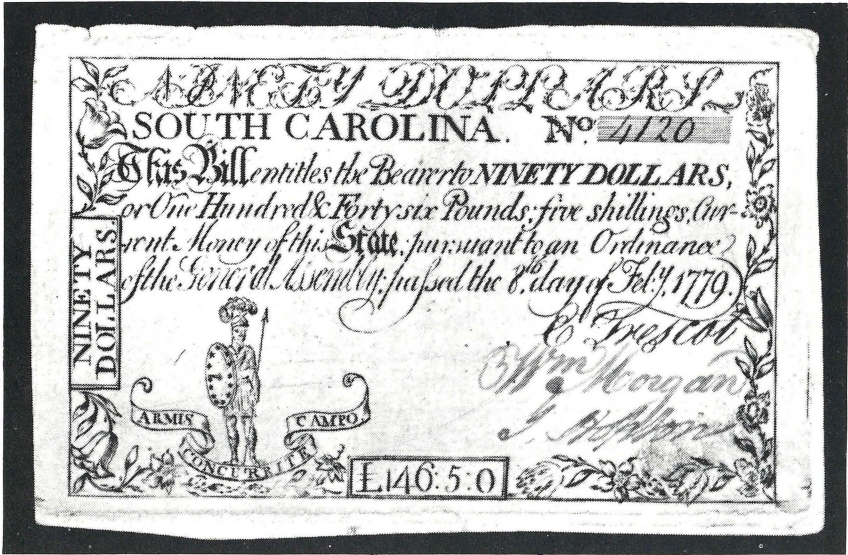 NINETY DOLLARS
SOUTH CAROLINA. No. 4120
This Bill entitles the Bearer to NINETY DOLLARS,
or One Hundred & Forty six Pounds; five shillings, Cur-
rent Money of this State, pursuant to an Ordinance
of the General Assembly; passed the 8th. day of Feby. 1779.
NINETY
DOLLARS.
E Trescot
Wm Morgan
ARMIS CAMPO
CONCURRITE
£146:5:0